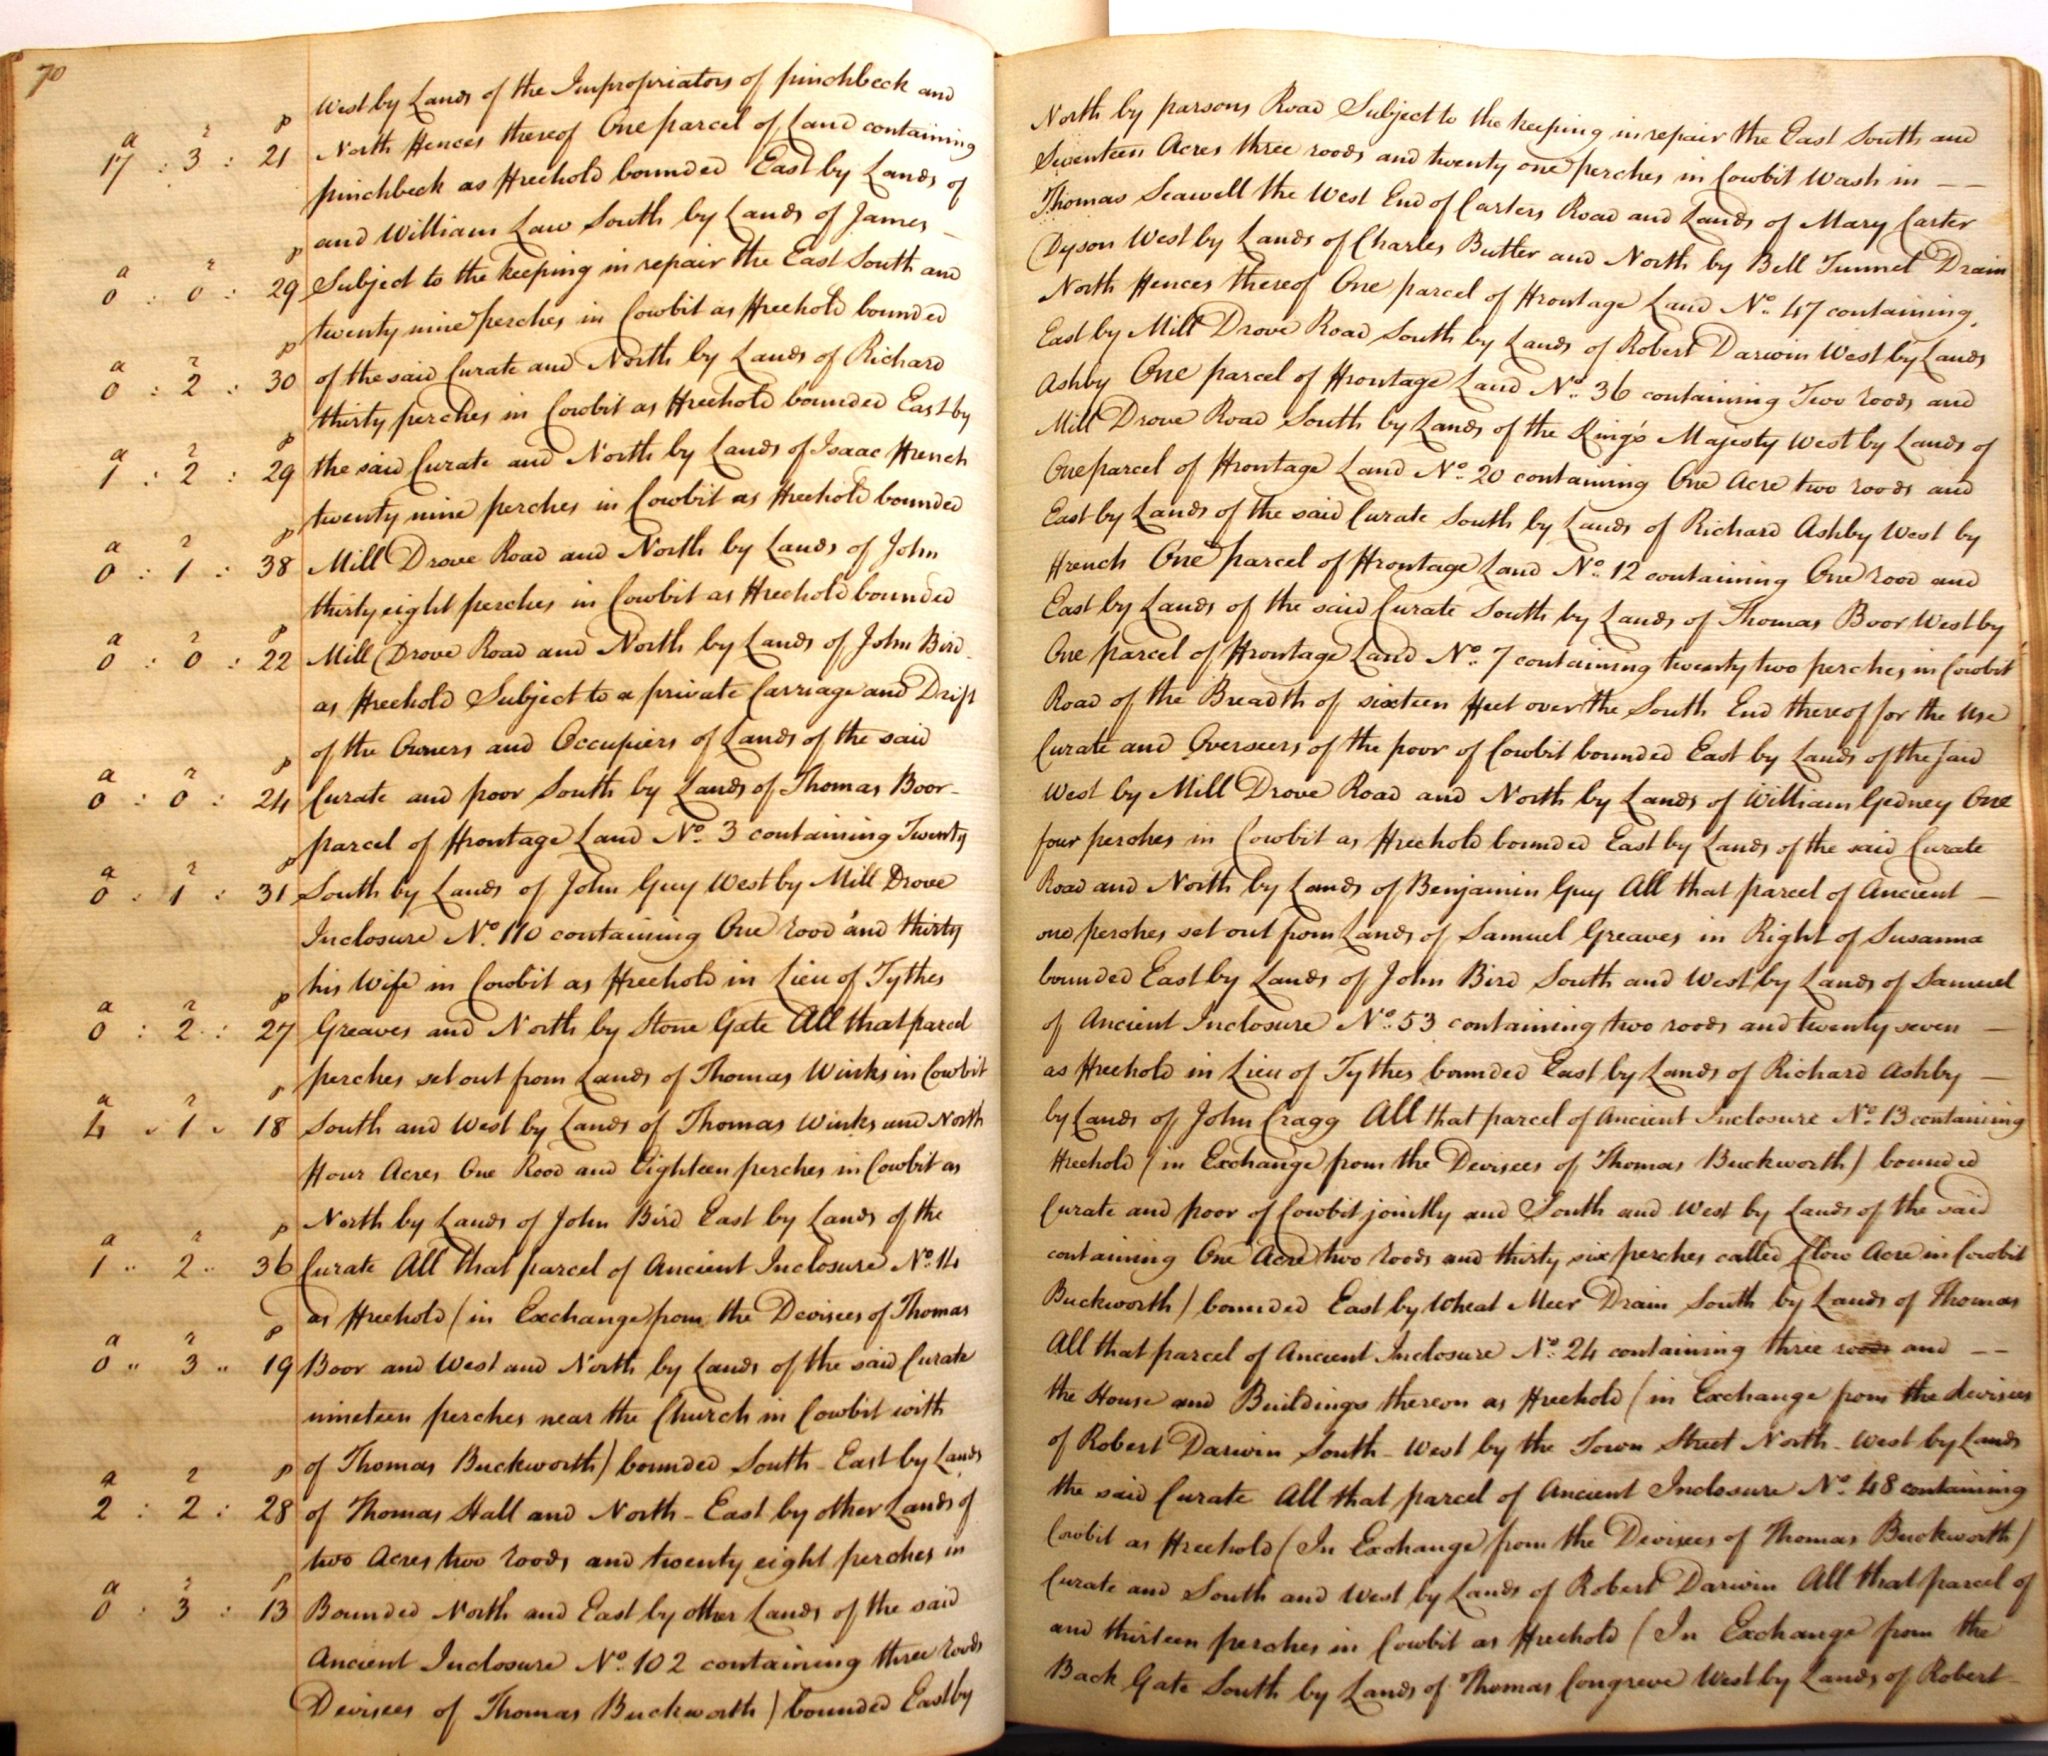 70
West by Lands of the Impropriators of pinchbeck and North by parsons Road Subject to the keeping in repair the East South and
a r p
17 : 3 : 21 North Fences thereof One parcel of Land containing Seventeen Acres three roods and twenty one perches in Cowbit Wash in — —
pinchbeck as Freehold bounded East by Lands of Thomas Seawell the West End of Carters Road and Lands of Mary Carter
and William Law South by Lands of James — Dyson West by Lands of Charles Butler and North by Bell Tunnel Drain
a r p
0 : 0 : 29 Subject to the keeping in repair the East South and North Fences thereof One parcel of Frontage Land No. 47 containing
twenty nine perches in Cowbit as Freehold bounded East by Mill Drove Road South by Lands of Robert Darwin West by Lands
a r p
0 : 2 : 30 of the said Curate and North by Lands of Richard Ashby One parcel of Frontage Land No. 36 containing Two roods and
thirty perches in Cowbit as Freehold bounded East by Mill Drove Road South by Lands of the King's Majesty West by Lands of
a r p
1 : 2 : 29 the said Curate and North by Lands of Isaac French One parcel of Frontage Land No. 20 containing One Acre two roods and
twenty nine perches in Cowbit as Freehold bounded East by Lands of the said Curate South by Lands of Richard Ashby West by
a r p
0 : 1 : 38 Mill Drove Road and North by Lands of John French One parcel of Frontage Land No. 12 containing One rood and
thirty eight perches in Cowbit as Freehold bounded East by Lands of the said Curate South by Lands of Thomas Boor West by
a r p
0 : 0 : 22 Mill Drove Road and North by Lands of John Bird One parcel of Frontage Land No. 7 containing twenty two perches in Cowbit
as Freehold Subject to a private Carriage and Drift Road of the Breadth of sixteen Feet over the South End thereof for the use
of the Owners and Occupiers of Lands of the said Curate and Overseers of the poor of Cowbit bounded East by Lands of the said
a r p
0 : 0 : 24 Curate and poor South by Lands of Thomas Boor — West by Mill Drove Road and North by Lands of William Gedney One
parcel of Frontage Land No. 3 containing Twenty four perches in Cowbit as Freehold bounded East by Lands of the said Curate
a r p
0 : 1 : 31 South by Lands of John Guy West by Mill Drove Road and North by Lands of Benjamin Guy All that parcel of Ancient —
Inclosure No. 110 containing One rood and thirty one perches set out from Lands of Samuel Greaves in Right of Susanna
his Wife in Cowbit as Freehold in Lieu of Tythes bounded East by Lands of John Bird South and West by Lands of Samuel
a r p
0 : 2 : 27 Greaves and North by Stone Gate All that parcel of Ancient Inclosure No. 53 containing two roods and twenty seven —
perches set out from Lands of Thomas Winks in Cowbit as Freehold in Lieu of Tythes bounded East by Lands of Richard Ashby —
a r p
4 : 1 : 18 South and West by Lands of Thomas Winks and North by Lands of John Cragg All that parcel of Ancient Inclosure No. 13 containing
Four Acres One Rood and Eighteen perches in Cowbit as Freehold (in Exchange from the Devisees of Thomas Buckworth) bounded
North by Lands of John Bird East by Lands of the Curate and poor of Cowbit jointly and South and West by Lands of the said
a r p
1 " 2 " 36 Curate All that parcel of Ancient Inclosure No. 14 containing One Acre two roods and thirty six perches called Clow Acre in Cowbit
as Freehold (in Exchange from the Devisees of Thomas Buckworth) bounded East by Wheat Meer Drain South by Lands of Thomas
a r p
0 " 3 " 19 Boor and West and North by Lands of the said Curate All that parcel of Ancient Inclosure No. 24 containing three roods and — —
nineteen perches near the Church in Cowbit with the House and Buildings thereon as Freehold (in Exchange from the devisees
of Thomas Buckworth) bounded South-East by Lands of Robert Darwin South-West by the Town Street North-West by Lands
a r p
2 : 2 : 28 of Thomas Hall and North-East by other Lands of the said Curate All that parcel of Ancient Inclosure No. 48 containing
two Acres two roods and twenty eight perches in Cowbit as Freehold (In Exchange from the Devisees of Thomas Buckworth)
a r p
0 : 3 : 13 Bounded North and East by other Lands of the said Curate and South and West by Lands of Robert Darwin All that parcel of
Ancient Inclosure No. 102 containing three roods and thirteen perches in Cowbit as Freehold (In Exchange from the
Devisees of Thomas Buckworth) bounded East by Back Gate South by Lands of Thomas Congreve West by Lands of Robert